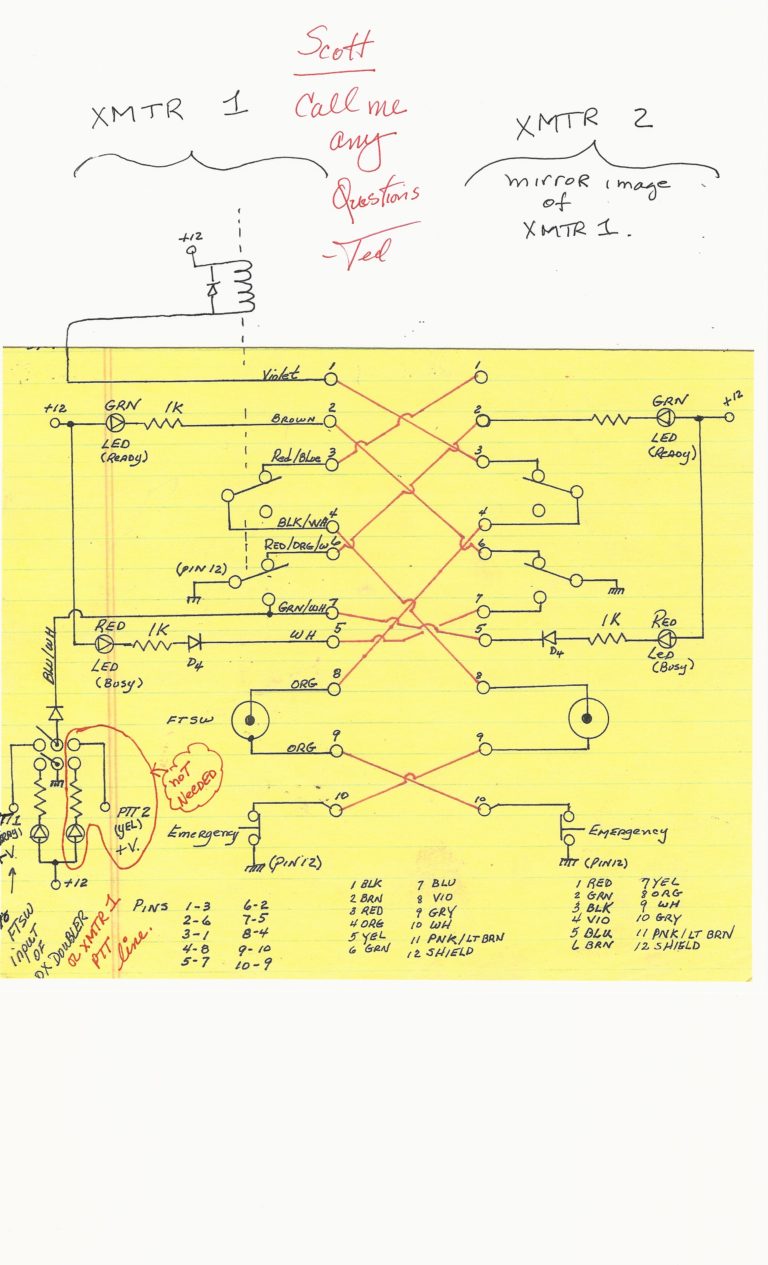 Scott
Call me
any
Questions
-Ted
XMTR 1
XMTR 2
mirror image
of
XMTR 1.
+12
Violet 1
1
+12
GRN
1K
BROWN 2
LED
(READY)
2
GRN
+12
LED
(READY)
Red/Blue 3
3
BLK/WH 4
4
RED/ORG/W 6
6
(PIN 12)
GRN/WH 7
7
RED
1K
WH 5
LED
(BUSY)
D4
5
D4
1K
RED
LED
(BUSY)
BLU/WH
ORG 8
8
FTSW
ORG 9
9
NOT
NEEDED
10
10
PTT 2
(YEL)
+V.
Emergency
(PIN 12)
EMERGENCY
(PIN 12)
+12
FTSW
INPUT
OF
DX DOUBLER
OR XMTR 1
PTT
line.
PINS
1-3 6-2
2-6 7-5
3-1 8-4
4-8 9-10
5-7 10-9
1 BLK 7 BLU
2 BRN 8 VIO
3 RED 9 GRY
4 ORG 10 WH
5 YEL 11 PNK/LT BRN
6 GRN 12 SHIELD
1 RED 7 YEL
2 GRN 8 ORG
3 BLK 9 WH
4 VIO 10 GRY
5 BLU 11 PNK/LT BRN
6 BRN 12 SHIELD